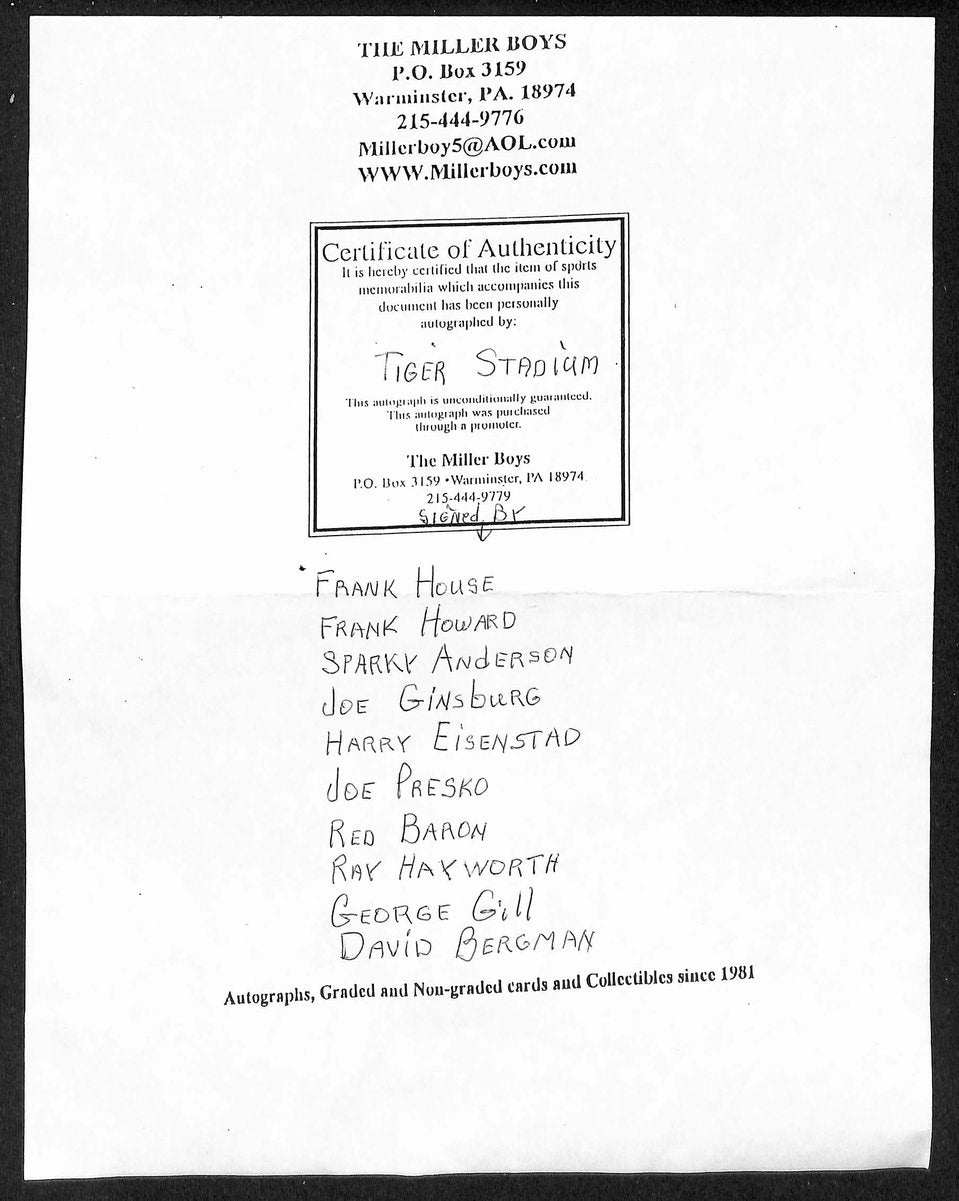 THE MILLER BOYS
P.O. Box 3159
Warminster, PA. 18974
215-444-9776
Millerboy5@AOL.com
WWW.Millerboys.com
Certificate of Authenticity
It is hereby certified that the item of sports
memorabilia which accompanies this
document has been personally
autographed by:
TIGER STADIUM
This autograph is unconditionally guaranteed.
This autograph was purchased
through a promoter.
The Miller Boys
P.O. Box 3159 •Warminster, PA 18974
215-444-9779
SIGNed BY
FRANK HOUSE
FRANK HOWARD
SPARKY ANdERSON
JOE GINSbURG
HARRY EISENSTAD
JOE PRESKO
RED BARON
RAY HAYWORTH
GEORGE Gill
DAVID BERGMAN
Autographs, Graded and Non-graded cards and Collectibles since 1981